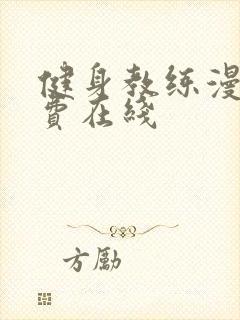 健身教练漫
费在线
方励